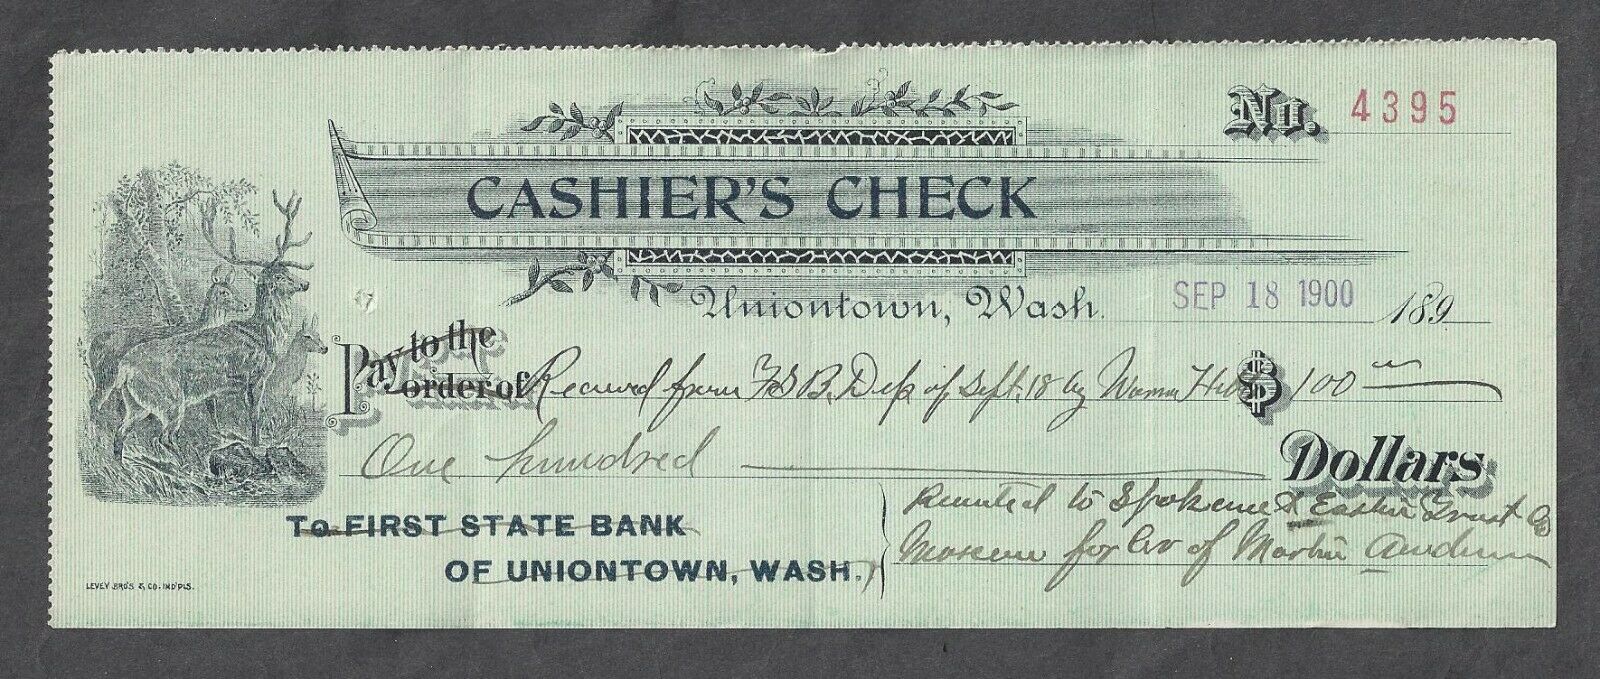 No. 4395
CASHIER'S CHECK
Uniontown, Wash. SEP 18 1900 189
Pay to the
order of Received from F.S.B. Dep of Sept. 18 by $ 100
One hundred Dollars
To FIRST STATE BANK
OF UNIONTOWN, WASH.
Remitted to Spokane & Eastern Trust Co
Moscow for Cr of Martin Anderson
LEVEY BRO'S & CO. IND'PLS.